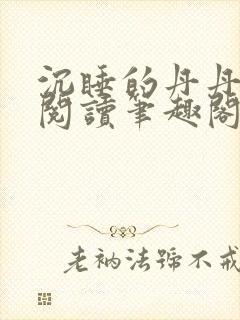 沉睡的丹丹
閱讀筆趣閣
老衲法號不戒